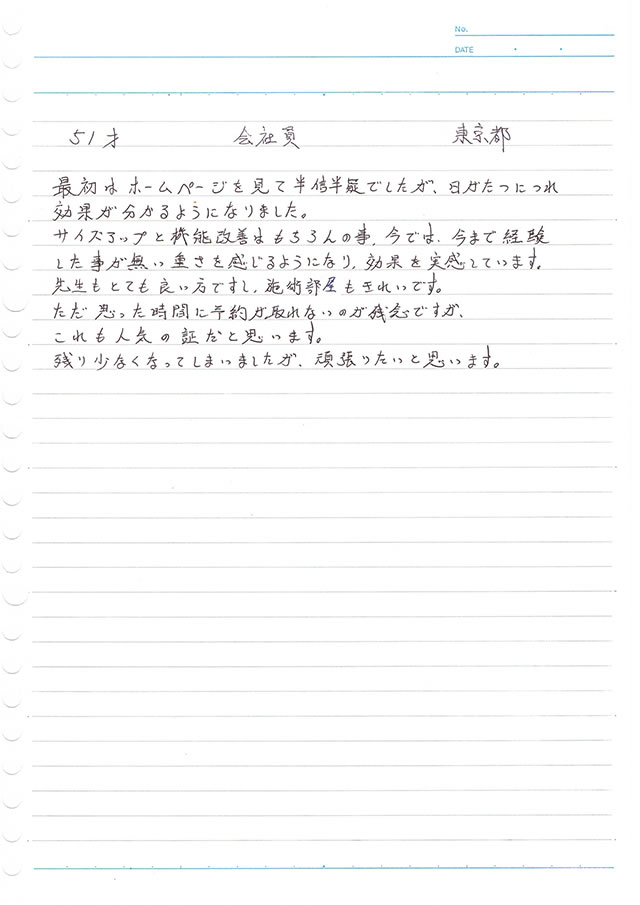 No.
DATE
51才 会社員 東京都
最初はホームページを見て半信半疑でしたが、日がたつにつれ
効果が分かるようになりました。
サイズアップと機能改善はもちろんの事、今では、今まで経験
した事が無い重さを感じるようになり、効果を実感しています。
先生もとても良い方ですし、施術部屋もきれいです。
ただ思った時間に予約が取れないのが残念ですが、
これも人気の証だと思います。
残り少なくなってしまいましたが、頑張りたいと思います。